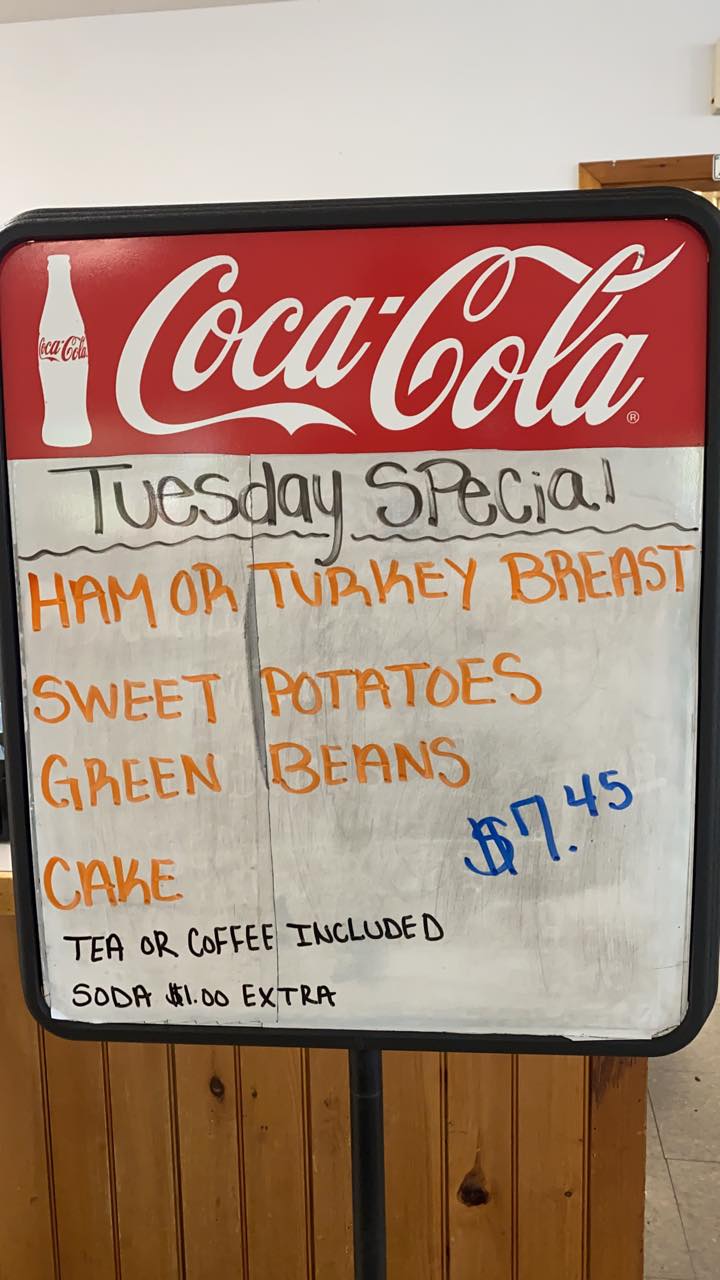 Coca-Cola
Coca-Cola®
Tuesday Special
HAM OR TURKEY BREAST
SWEET POTATOES
GREEN BEANS
$7.45
CAKE
TEA OR COFFEE INCLUDED
SODA $1.00 EXTRA